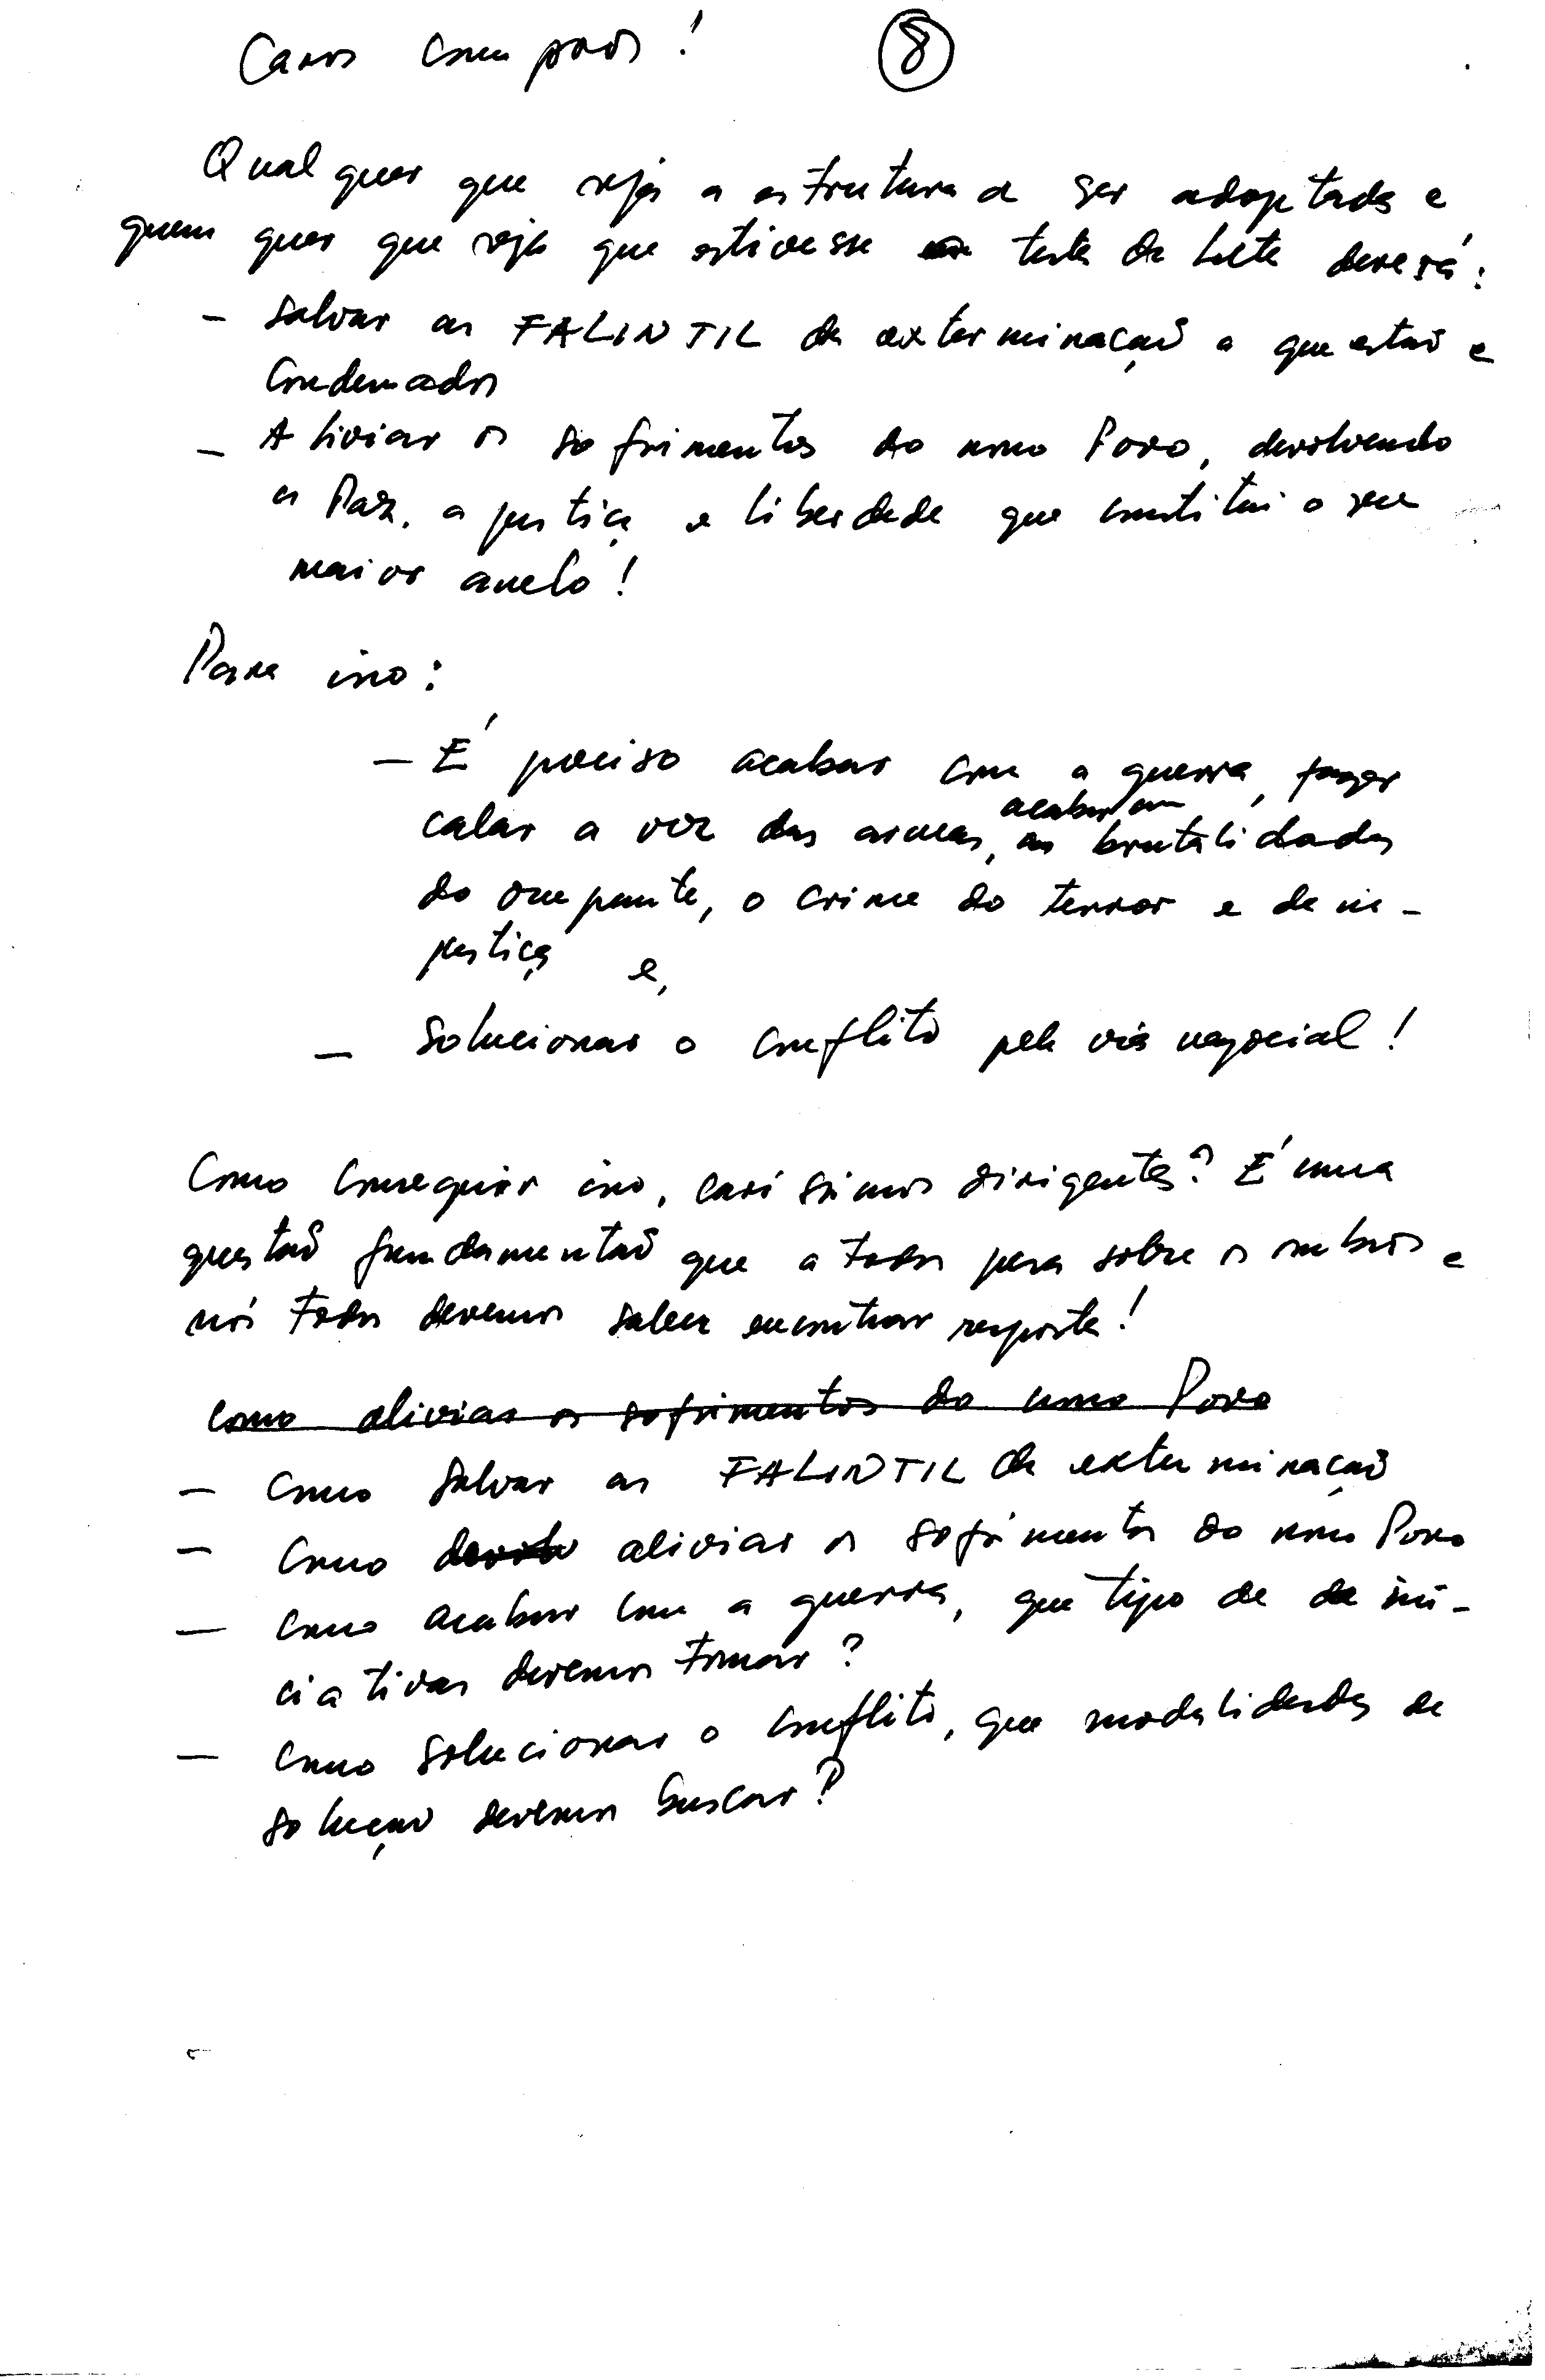 Caros compadres! 8
Qual quer que seja a estrutura a ser adoptada e
quem quer que seja que estivesse testa da luta deverá:
- Salvar as FALINTIL da exterminação a que estão e
Condenados
- Aliviar os sofrimentos do nosso Povo, devolvendo
a Paz, a justiça e liberdade que constitui o seu
maior anelo!
Para isso:
- É preciso acabar com a guerra, fazer
calar a voz das armas, acabar com as brutalidades
do ocupante, o crime do terror e da in-
justiça e,
- Solucionar o conflito pela via negocial!
Como conseguir isso, caríssimos dirigentes? É uma
questão fundamental que a todos pesa sobre os ombros e
nós todos devemos saber encontrar resposta!
como aliviar os sofrimentos do nosso Povo
- Como salvar as FALINTIL da exterminação
- Como aliviar os sofrimentos do nosso Povo
- Como acabar com a guerra, que tipo de de ini-
ciativas devemos tomar?
- Como solucionar o conflito, que modalidades de
solução devemos buscar?